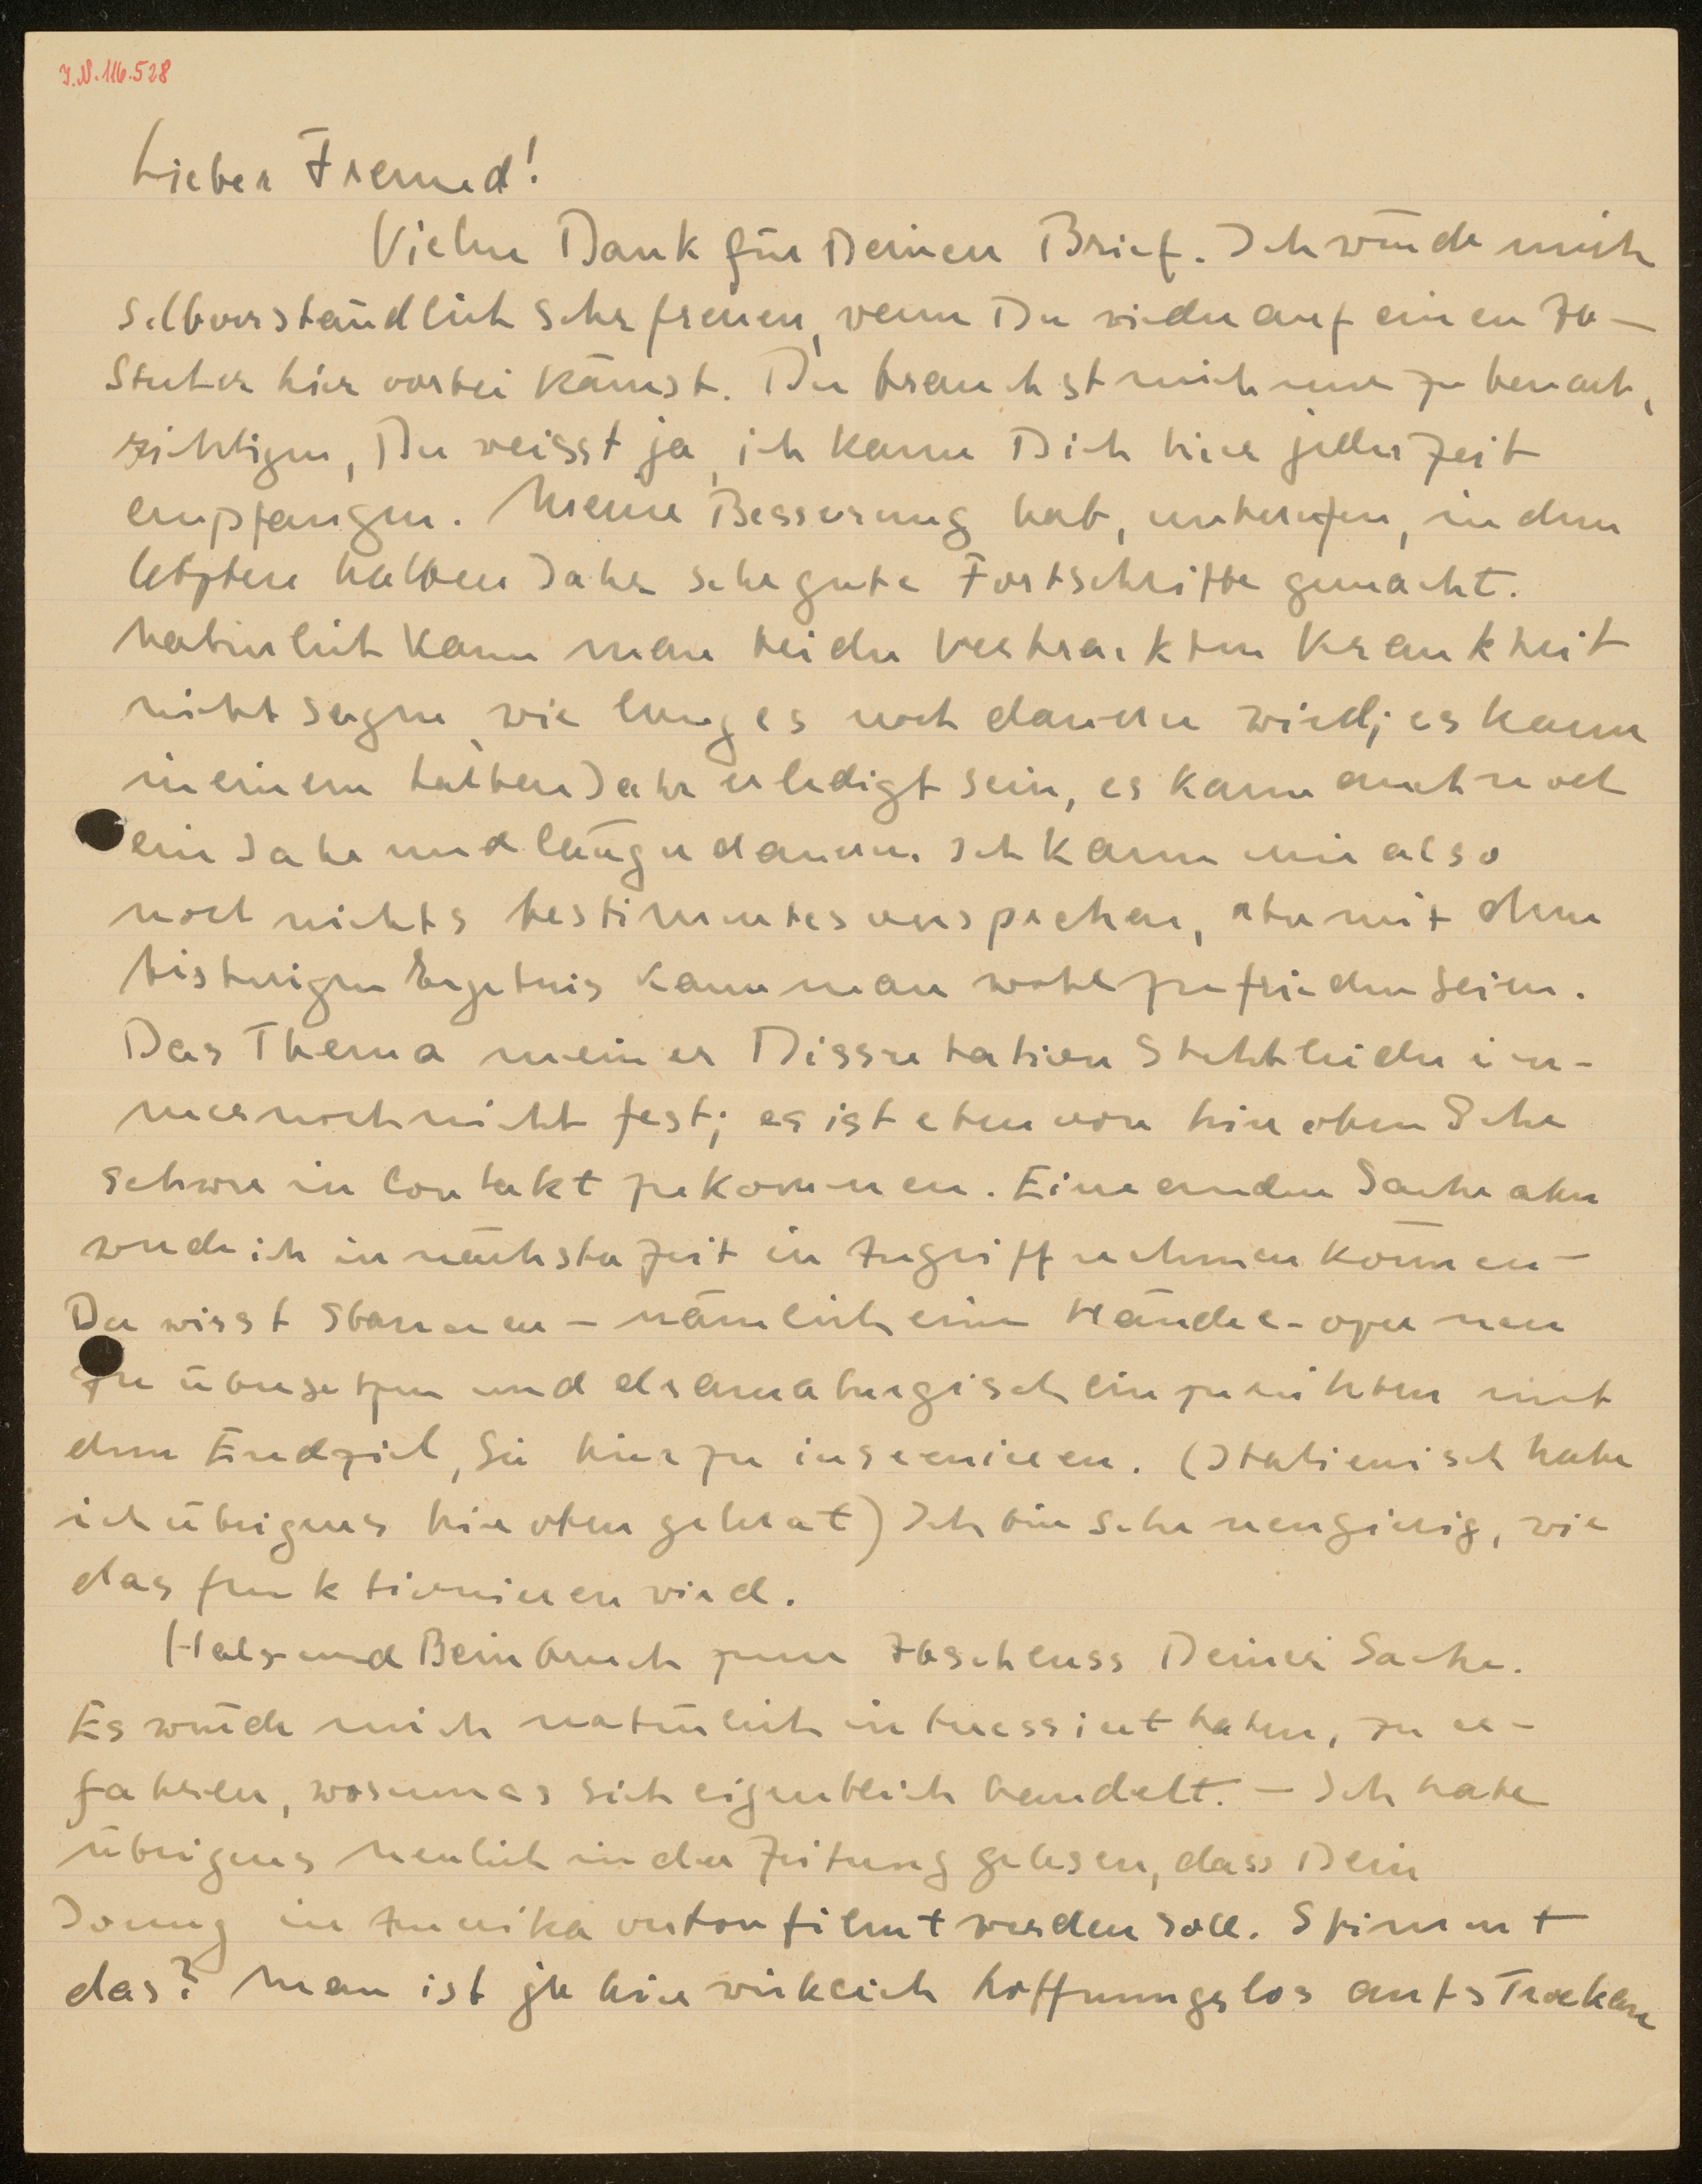 I.N. 116.528
Lieber Freund!
Vielen Dank für Deinen Brief. Ich würde mich
selbverständlich sehr freuen, wenn Du wieder auf einen Ab-
stecher hier vorbei kämst. Du brauchst mich nur zu benach,
richtigen, Du weisst ja, ich kann Dich hier jederzeit
empfangen. Meine Besserung hat, unberufen, in dem
letzten halben Jahr sehr gute Fortschritte gemacht.
Natürlich kann man bei der vertrackten Krankheit
nicht sagen, wie lang es noch dauern wird; es kann
in einem halben Jahr erledigt sein, es kann auch noch
ein Jahr und länger dauern. Ich kann mir also
noch nichts bestimmtes versprechen, aber mit dem
bisherigen Ergebnis kann man wohl zufrieden sein.
Das Thema meiner Dissertation steht leider im-
mer noch nicht fest; es ist eben von hier oben sehr
schwer in Contakt zu kommen. Eine andere Sache aber
werde ich in nächster Zeit in Angriff nehmen können -
Du wirst staunen - nämlich eine Händel-oper neu
zu übersetzen und dramaturgisch einzurichten mit
dem Endziel, sie hier zu inscenieren. (Italienisch habe
ich übrigens hier oben gelernt) Ich bin sehr neugierig, wie
das funktionieren wird.
Hals und Beinbruch zum Abschluss Deiner Sache.
Es würde mich natürlich interessiert haben, zu er-
fahren, worum es sich eigentlich handelt. - Ich habe
übrigens neulich in der Zeitung gelesen, dass Dein
Jonny in Amerika vertonfilmt werden soll. Stimmt
das? Man ist ja hier wirklich hoffnungslos aufs Trockene